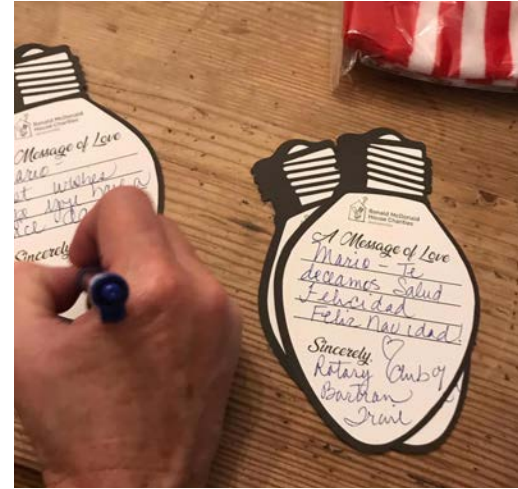 Ronald McDonald
House Charities
A Message of Love
wishes
you have a
Sincerely
Ronald McDonald
House Charities
A Message of Love
Mario - Te
deceamos Salud
Felicidad
Feliz Navidad!
Sincerely,
Rotary Club of
Bartran
Trail